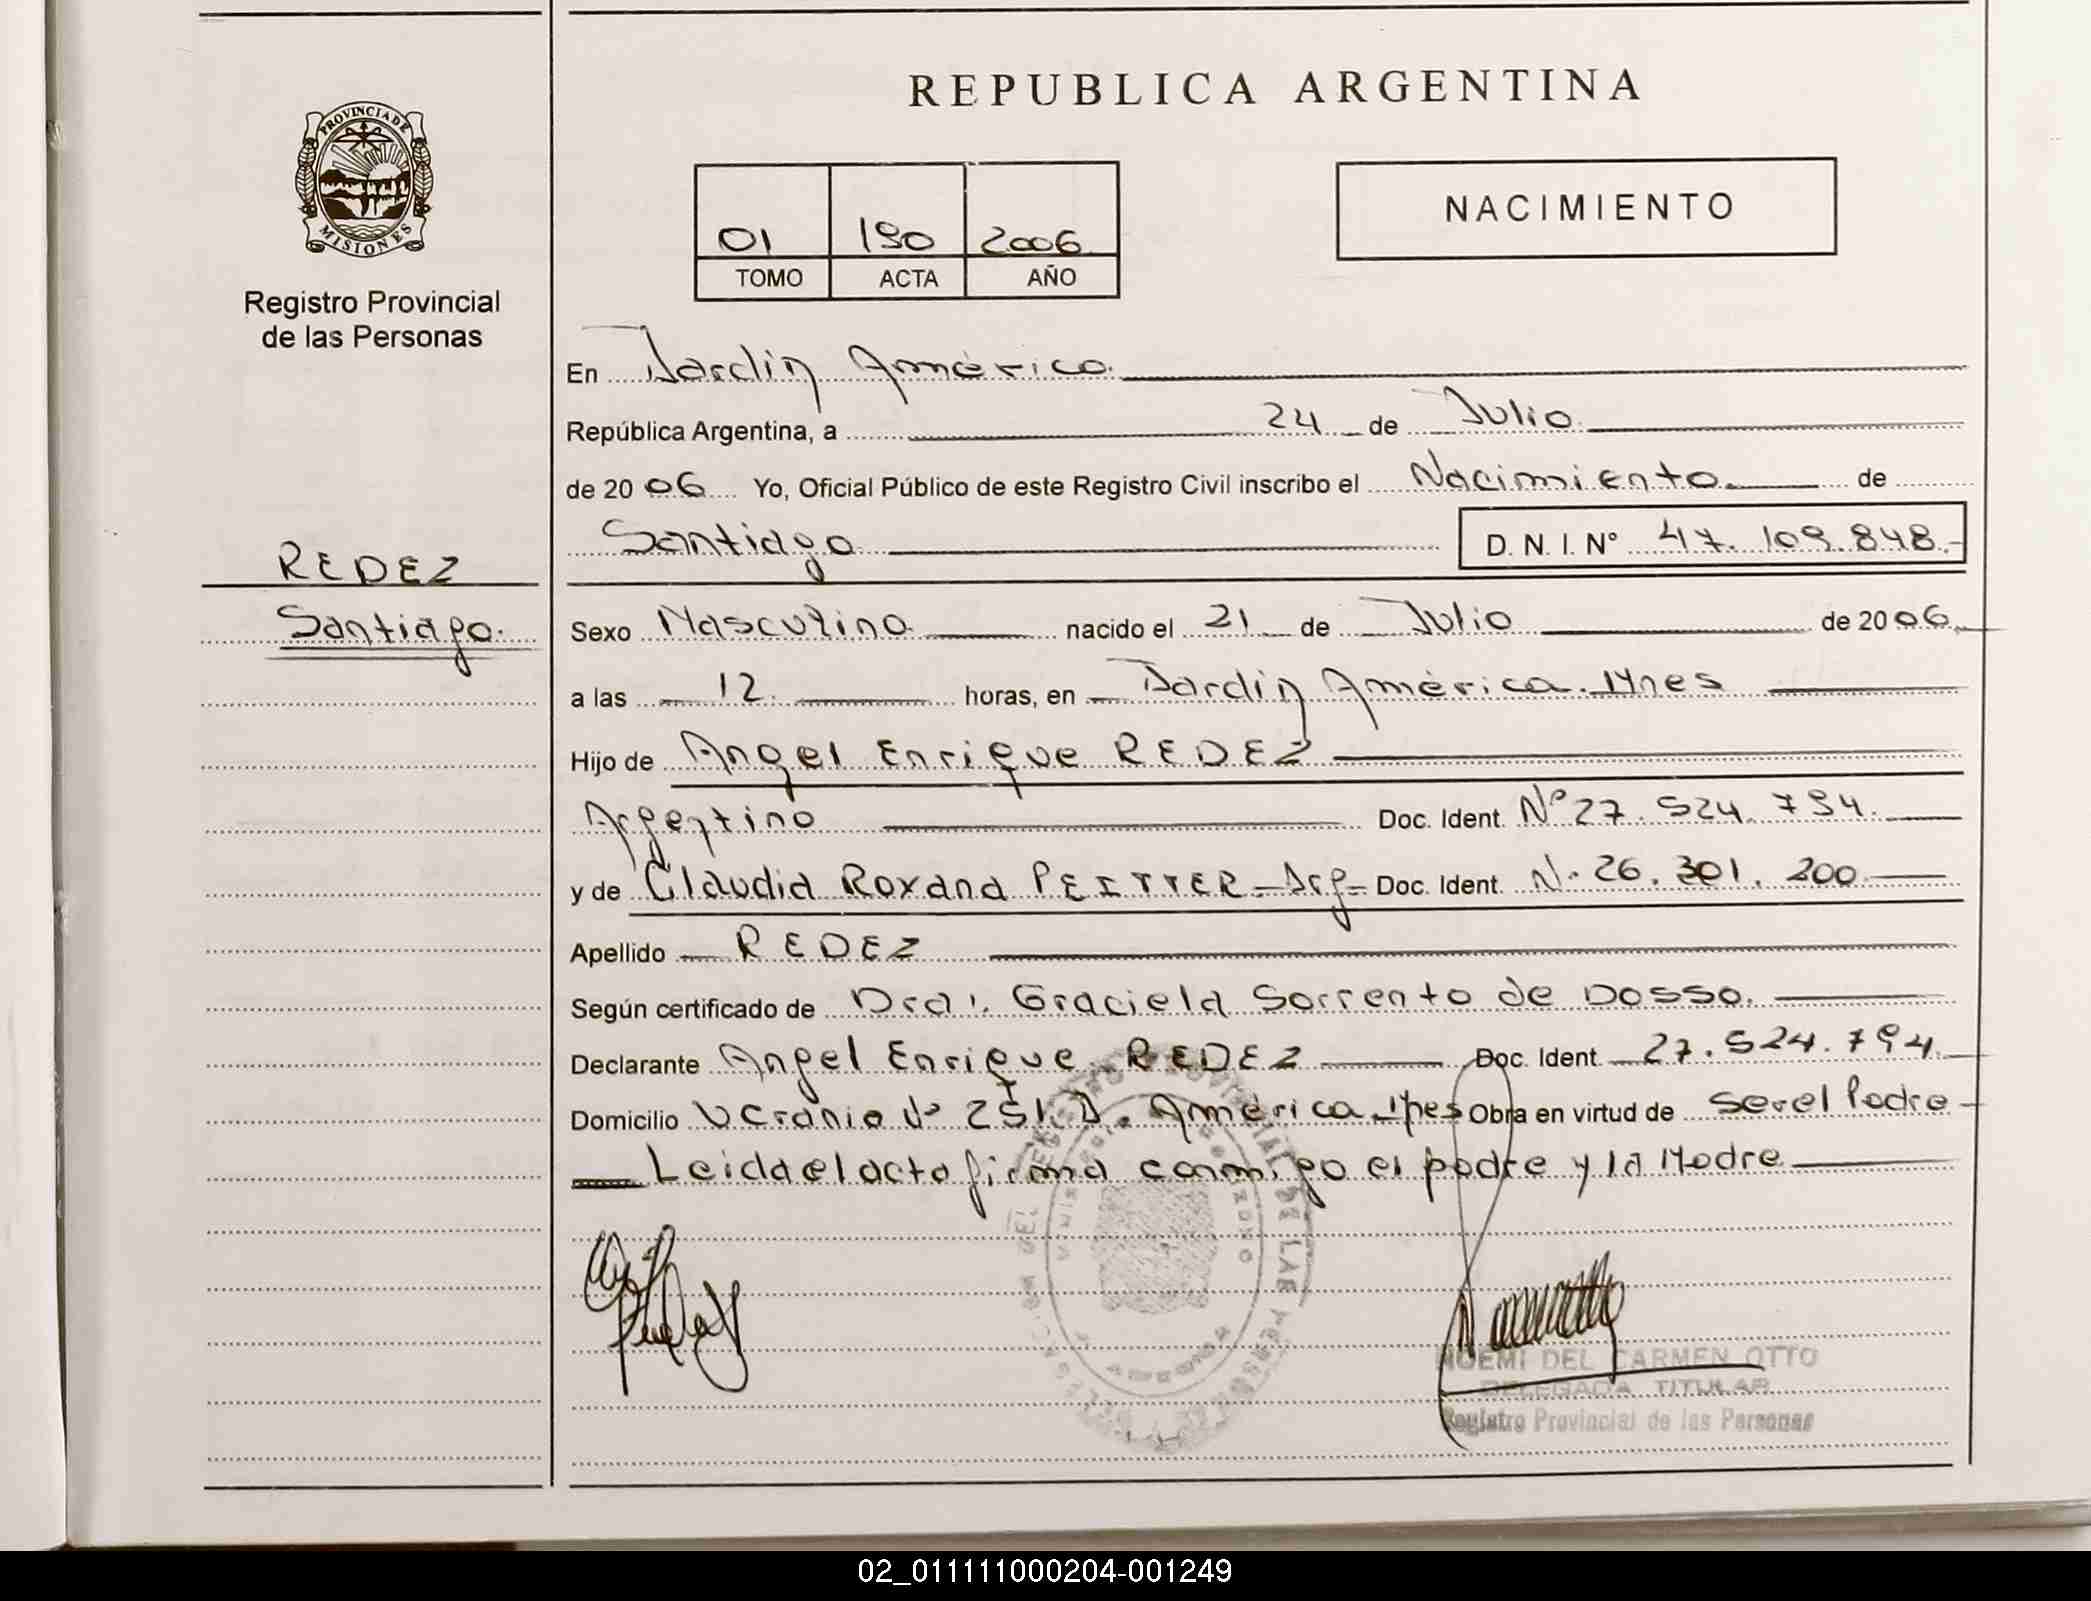 REPUBLICA ARGENTINA
PROVINCIA DE
MISIONES
Registro Provincial
de las Personas
NACIMIENTO
01 190 2006
TOMO ACTA AÑO
En Jardín América
República Argentina, a 24 de Julio
de 2006 Yo, Oficial Público de este Registro Civil inscribo el Nacimiento de
Santiago D. N. I. Nº 47.109.848.-
REDEZ
Santiago.
Sexo Masculino nacido el 21 de Julio de 2006
a las 12 horas, en Jardín América. Mnes
Hijo de Angel Enrique REDEZ
Argentino Doc. Ident. Nº 27.924.794.
y de Claudia Roxana PEITTER - Arg - Doc. Ident. Nº 26.301.200
Apellido REDEZ
Según certificado de Dra: Graciela Sorrento de Dosso.
Declarante Angel Enrique REDEZ Doc. Ident. 27.924.794.
Domicilio Ucrania Nº 251. J. América. Mnes Obra en virtud de ser el Padre
Leida el acta firma conmigo el padre y la Madre
NOEMI DEL CARMEN OTTO
DELEGADA TITULAR
Registro Provincial de las Personas
02_011111000204-001249